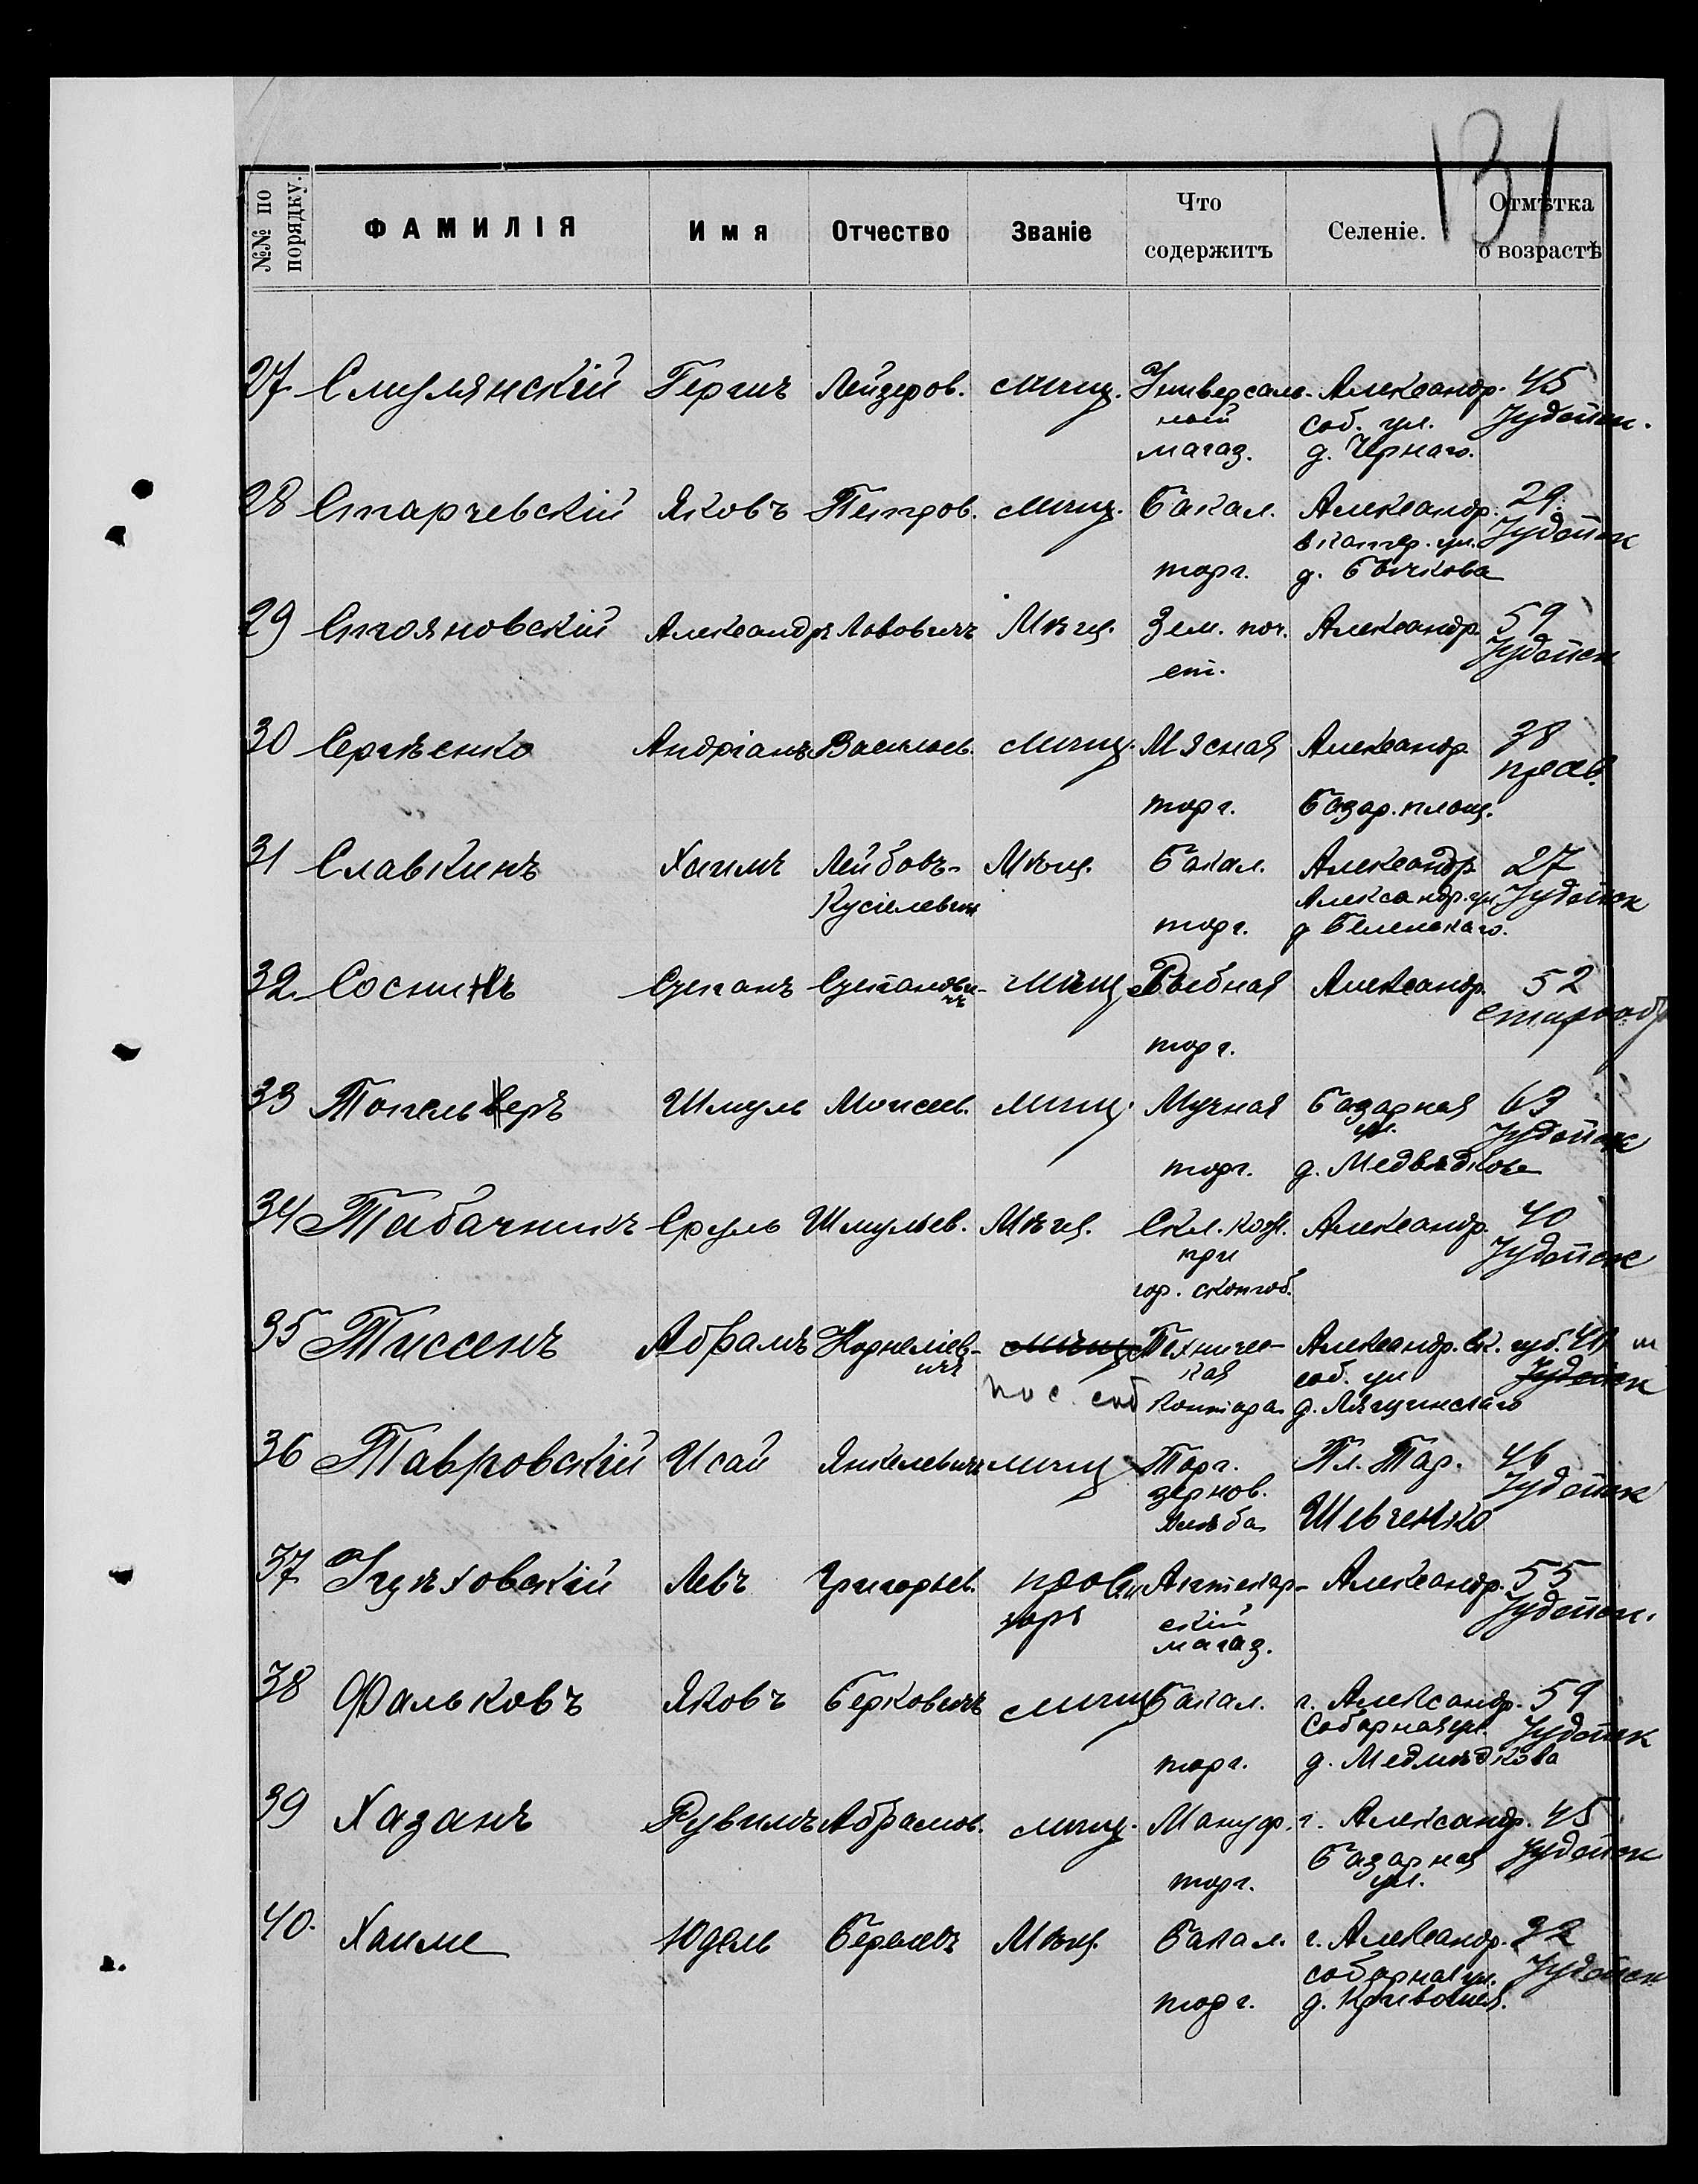 131
№№ по порядку.
ФАМИЛІЯ
Имя
Отчество
Званіе
Что содержитъ
Селеніе.
Отмѣтка о возрастѣ
27 Смулянскій Гершъ Лейзеров. мѣщ. Универсаль- Александр. 45
ный соб. ул. Іудейск.
магаз. д. Чернаго.
28 Старчевскій Яковъ Петров. мѣщ. Бакал. Александр. 29
ул. Іудейск
торг. д. Бычкова
29 Стояновскій Александръ Львовичъ Мѣщ. Зем. поч. Александр. 59
ст. Іудейск
30 Сергѣенко Андріанъ Васильев. мѣщ. Мясная Александр. 38
прав.
торг. Базар. площ.
31 Славкинъ Хаимъ Лейбовъ- Мѣщ. Бакал. Александр. 27
Кусіелевич Александр. ул. Іудейск
торг. д. Беленькаго.
32. Соснинъ Степанъ Степанови- мѣщ. Рыбная Александр. 52
чъ старооб
торг.
33 Шмуль Моисеев. мѣщ. Мучная Базарная 63
ул. Іудейск
торг. д. Медвѣдкова
34 Табачникъ Сруль Шмульев. Мѣщ. Скл. кож. Александр. 40
при Іудейск
гор. скотоб.
35 Тиссенъ Абрамъ Корнеліев- мѣщ. Техничес- Александр. Ек. губ. 41
ичъ кая соб. ул. Іудейск
пос. соб Контора д.
36 Тавровскій Исай Янкелевичъ мѣщ Торг. Пл. Тар. 46
зернов. Іудейск
хлѣба Шевченко
37 Левъ Григорьев. прови Аптекар- Александр. 55
зоръ скій Іудейск.
магаз.
38 Фальковъ Яковъ Берковичъ мѣщ Бакал. г. Александр. 59
Соборная ул. Іудейск
торг. д. Медвѣдкова
39 Хазанъ Рувимъ Абрамов. мѣщ. Мануф. г. Александр. 45
Базарная Іудейск
торг. ул.
40. Хаиме Юдель Берковъ Мѣщ. Бакал. г. Александр. 32
соборная ул. Іудейск
торг. д. Кривошея.